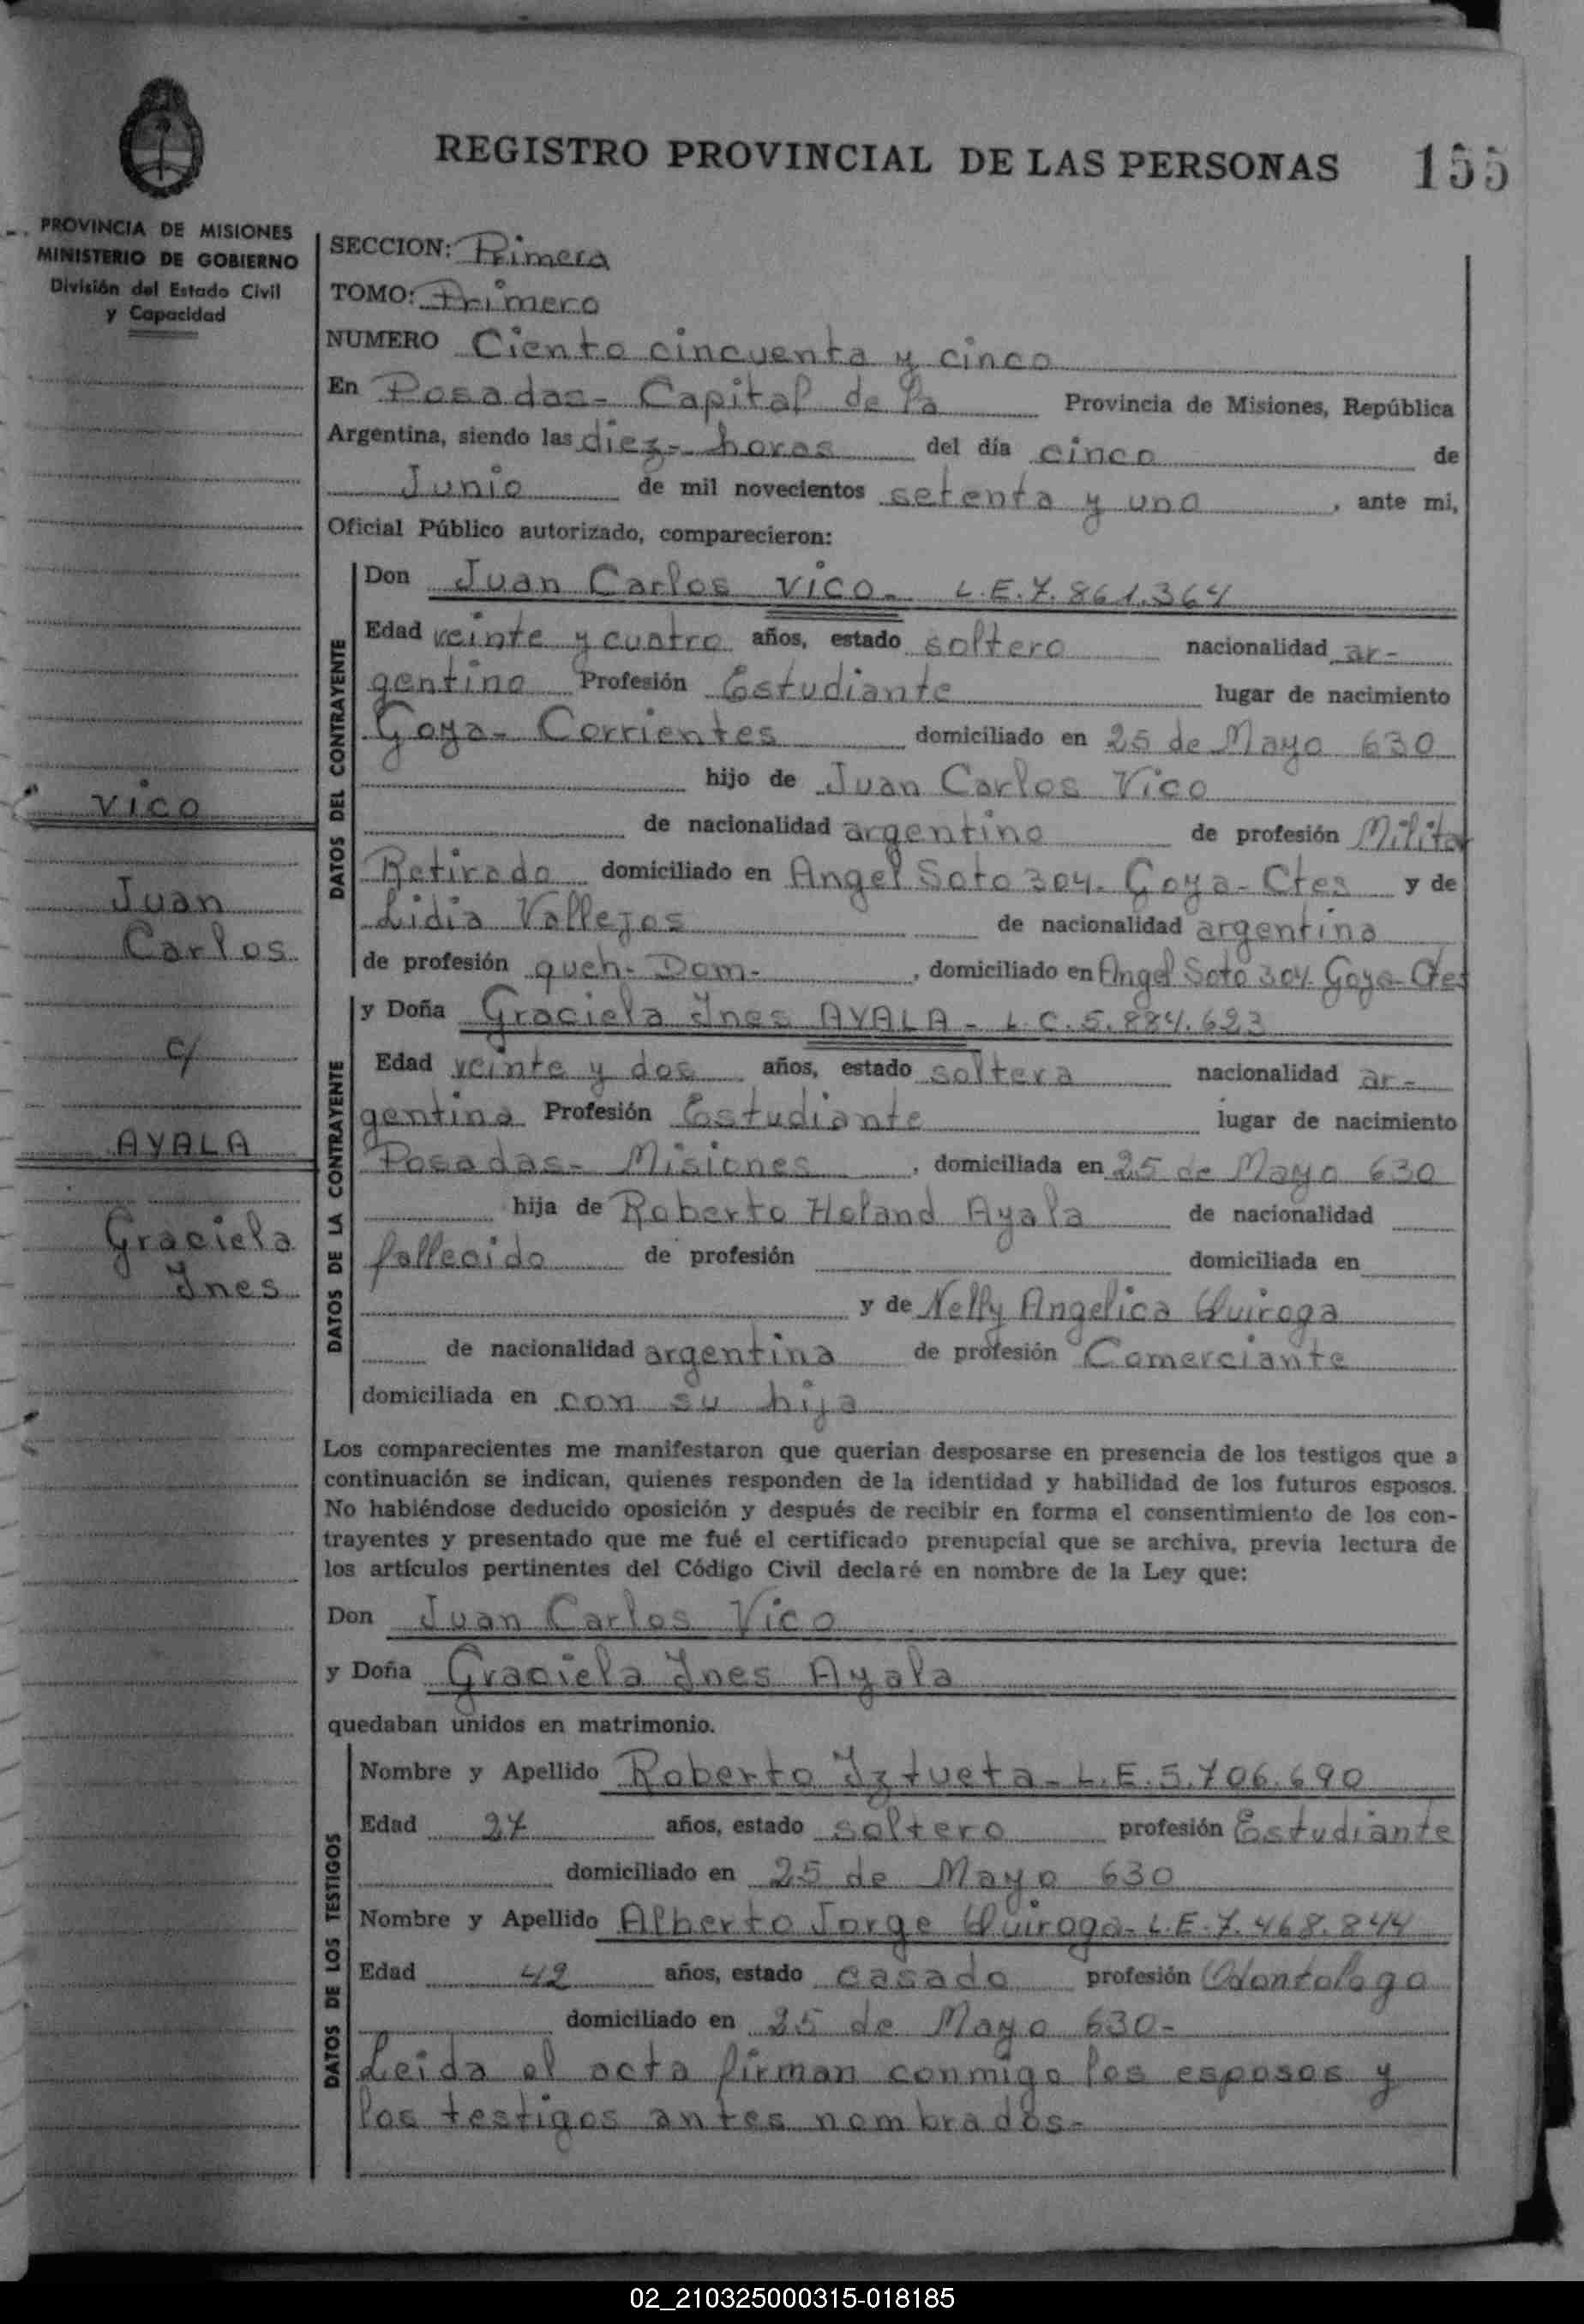 REGISTRO PROVINCIAL DE LAS PERSONAS 155
PROVINCIA DE MISIONES
MINISTERIO DE GOBIERNO
División del Estado Civil
y Capacidad
VICO
Juan
Carlos
c/
AYALA
Graciela
Ines
SECCION: Primera
TOMO: Primero
NUMERO Ciento cincuenta y cinco
En Posadas- Capital de la Provincia de Misiones, República
Argentina, siendo las diez- horas del día cinco de
Junio de mil novecientos setenta y uno, ante mi,
Oficial Público autorizado, comparecieron:
DATOS DEL CONTRAYENTE
Don Juan Carlos VICO- L.E.7.861.364
Edad veinte y cuatro años, estado soltero nacionalidad ar-
gentino Profesión Estudiante lugar de nacimiento
Goya- Corrientes domiciliado en 25 de Mayo 630
hijo de Juan Carlos Vico
de nacionalidad argentino de profesión Militar
Retirado domiciliado en Angel Soto 304. Goya- Ctes y de
Lidia Vallejos de nacionalidad argentina
de profesión queh- Dom-, domiciliado en Angel Soto 304 Goya- Ctes
DATOS DE LA CONTRAYENTE
y Doña Graciela Ines AYALA- L.C.5.884.623
Edad veinte y dos años, estado soltera nacionalidad ar-
gentina Profesión Estudiante lugar de nacimiento
Posadas- Misiones, domiciliada en 25 de Mayo 630
hija de Roberto Holand Ayala de nacionalidad
fallecido de profesión domiciliada en
y de Nelly Angelica Quiroga
de nacionalidad argentina de profesión Comerciante
domiciliada en con su hija
Los comparecientes me manifestaron que querían desposarse en presencia de los testigos que a
continuación se indican, quienes responden de la identidad y habilidad de los futuros esposos.
No habiéndose deducido oposición y después de recibir en forma el consentimiento de los con-
trayentes y presentado que me fué el certificado prenupcial que se archiva, previa lectura de
los artículos pertinentes del Código Civil declaré en nombre de la Ley que:
Don Juan Carlos Vico
y Doña Graciela Ines Ayala
quedaban unidos en matrimonio.
DATOS DE LOS TESTIGOS
Nombre y Apellido Roberto Iztueta- L.E.5.706.690
Edad 27 años, estado soltero profesión Estudiante
domiciliado en 25 de Mayo 630
Nombre y Apellido Alberto Jorge Quiroga- L.E.7.468.844
Edad 42 años, estado casado profesión Odontologo
domiciliado en 25 de Mayo 630-
Leida el acta firman conmigo los esposos y
los testigos antes nombrados-
02_210325000315-018185